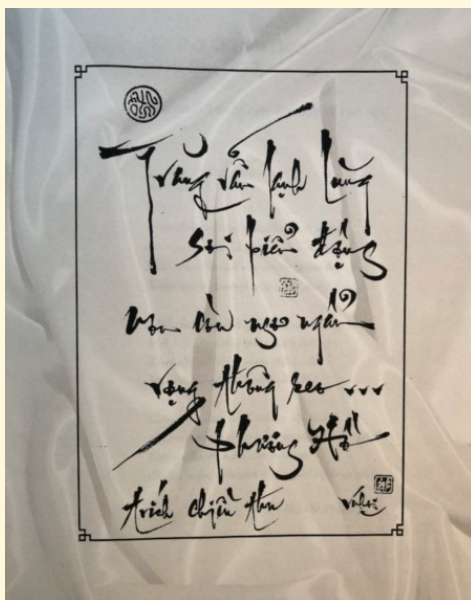 Trăng vẫn lạnh lùng
soi biển động
non còn ngơ ngẩn
vọng thông reo ...
Phương Hồ
trích chiều thu